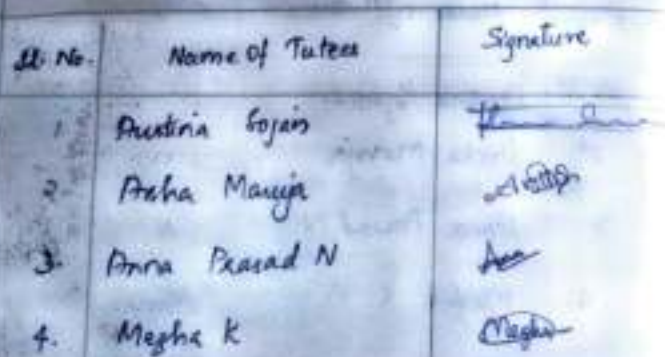 Sl. No. Name of Tutees Signature
1. Austina Sojan
2. Asha Maruja
3. Anna Prasad N Ann
4. Megha K Megha